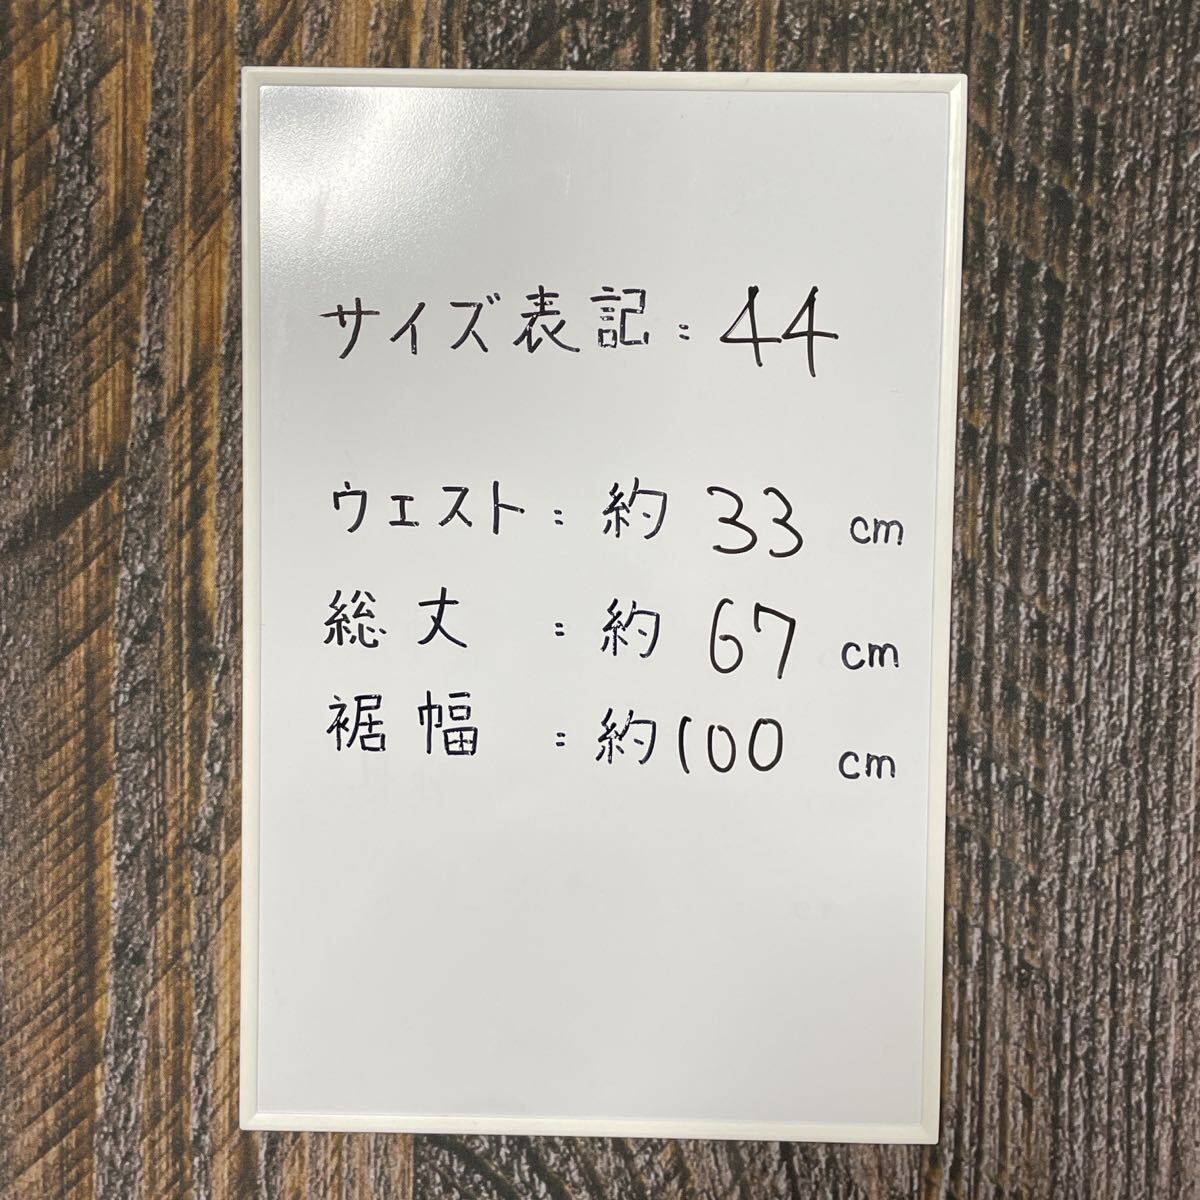 サイズ表記：44
ウエスト：約 33 cm
総丈：約 67 cm
裾幅：約100 cm